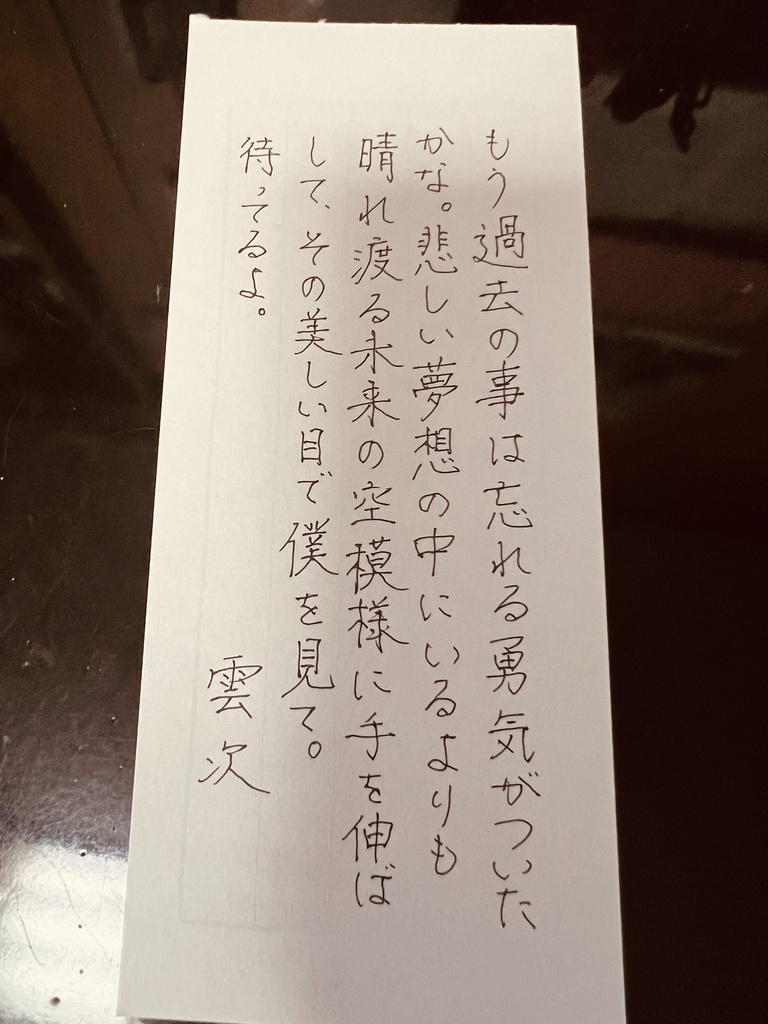 もう過去の事は忘れる勇気がついた
かな。悲しい夢想の中にいるよりも
晴れ渡る未来の空模様に手を伸ば
して、その美しい目で僕を見て。
待ってるよ。
雲次